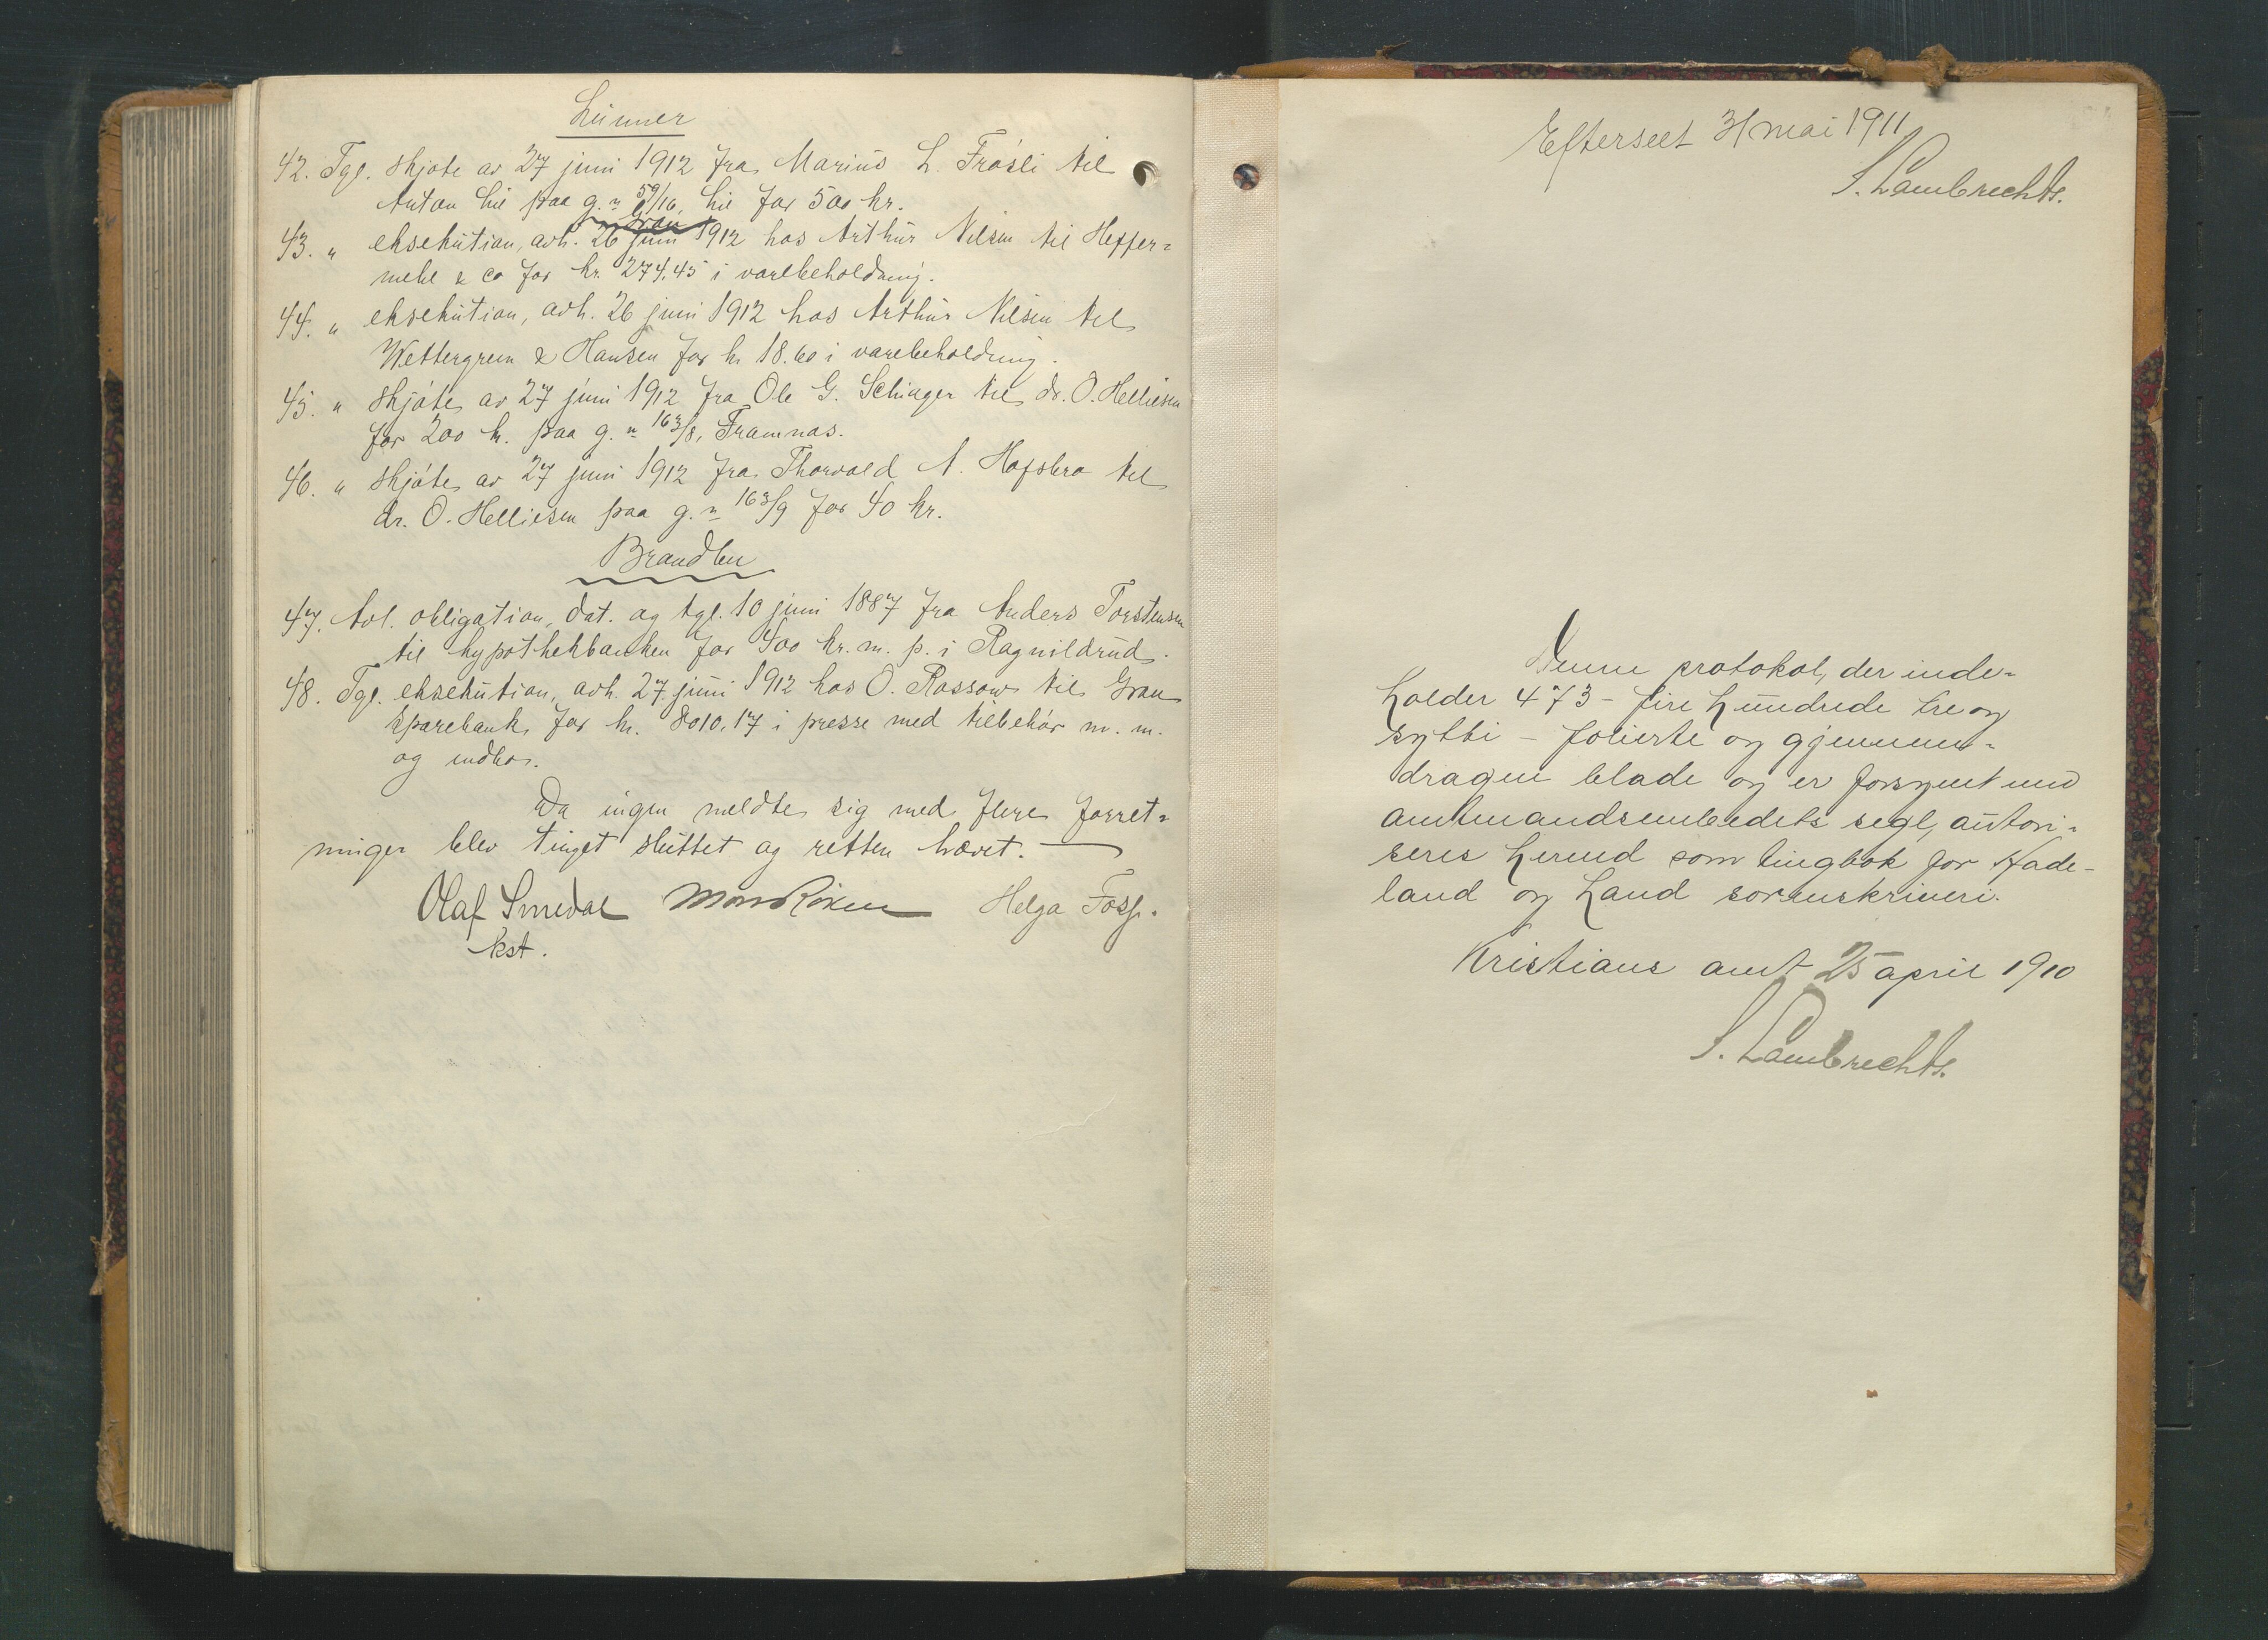 Lunner
42. Tgl. skjøte av 27 juni 1912 fra Marius L. Frøsli til
Anton Lie paa g. n 59/16, Lie for 500 kr.
Gran
43. " eksekution, avh. 26 juni 1912 hos Arthur Nilsen til Heffer-
mehl & co for kr. 274.45 i varebeholdning.
44. " eksekution, avh. 26 juni 1912 hos Arthur Nilsen til
Wettergreen & Hansen for kr 18.60 i varebeholdning.
45. " skjøte av 27 juni 1912 fra Ole G. Schiager til dr. O. Helliesen
for 200 kr. paa g. n 163/8, Framnæs.
46. " skjøte av 27 juni 1912 fra Thorvald A. Hofsbro til
dr. O. Helliesen paa g. n 163/9 for 40 kr.
Brandbu
47. Avl. obligation, dat. og tgl. 10 juni 1887 fra Anders Torstensen
til hypothekbanken for 400 kr. m. p. i Ragnildrud.
48. Tgl. eksekution, avh. 27 juni 1912 hos O. Rossow til Gran
sparebank for kr. 8010.17 i presse med tilbehør m. m.
og indbo.
Da ingen meldte sig med flere forret-
ninger blev tinget sluttet og retten hævet.
Olaf Smedal Helga Foss.
kst.
Efterseet 31 mai 1911
S. Lambrechts.
Denne protokol, der inde-
holder 473 - fire hundrede tre og
sytti - folierte og gjennem-
dragne blade og er forsynt med
amtmandsembedets segl, autori-
seres herved som tingbok for Hade-
land og Land sorenskriveri.
Kristians amt 25 april 1910
S. Lambrechts.